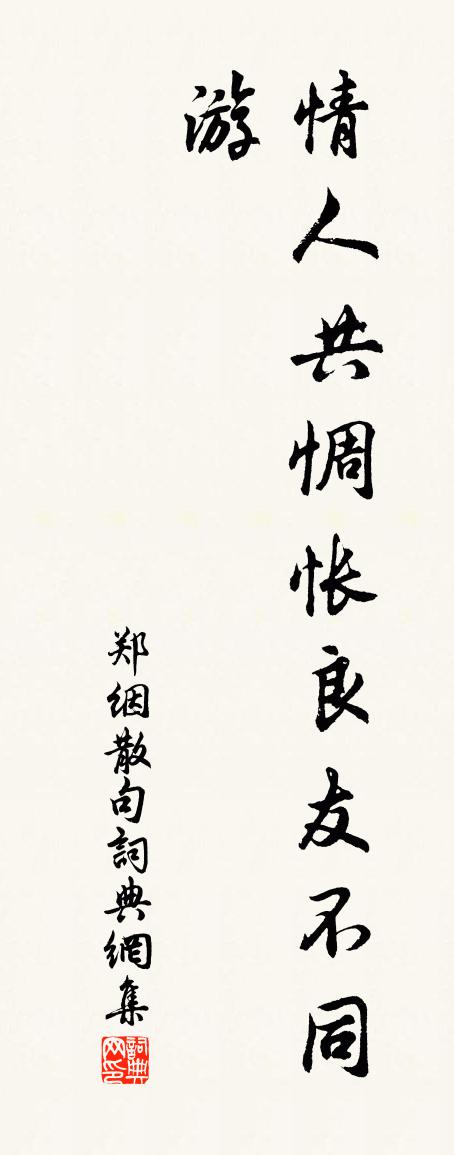 情人共惆怅良友不同
游
郑絪散句詞典網集
詞典网印